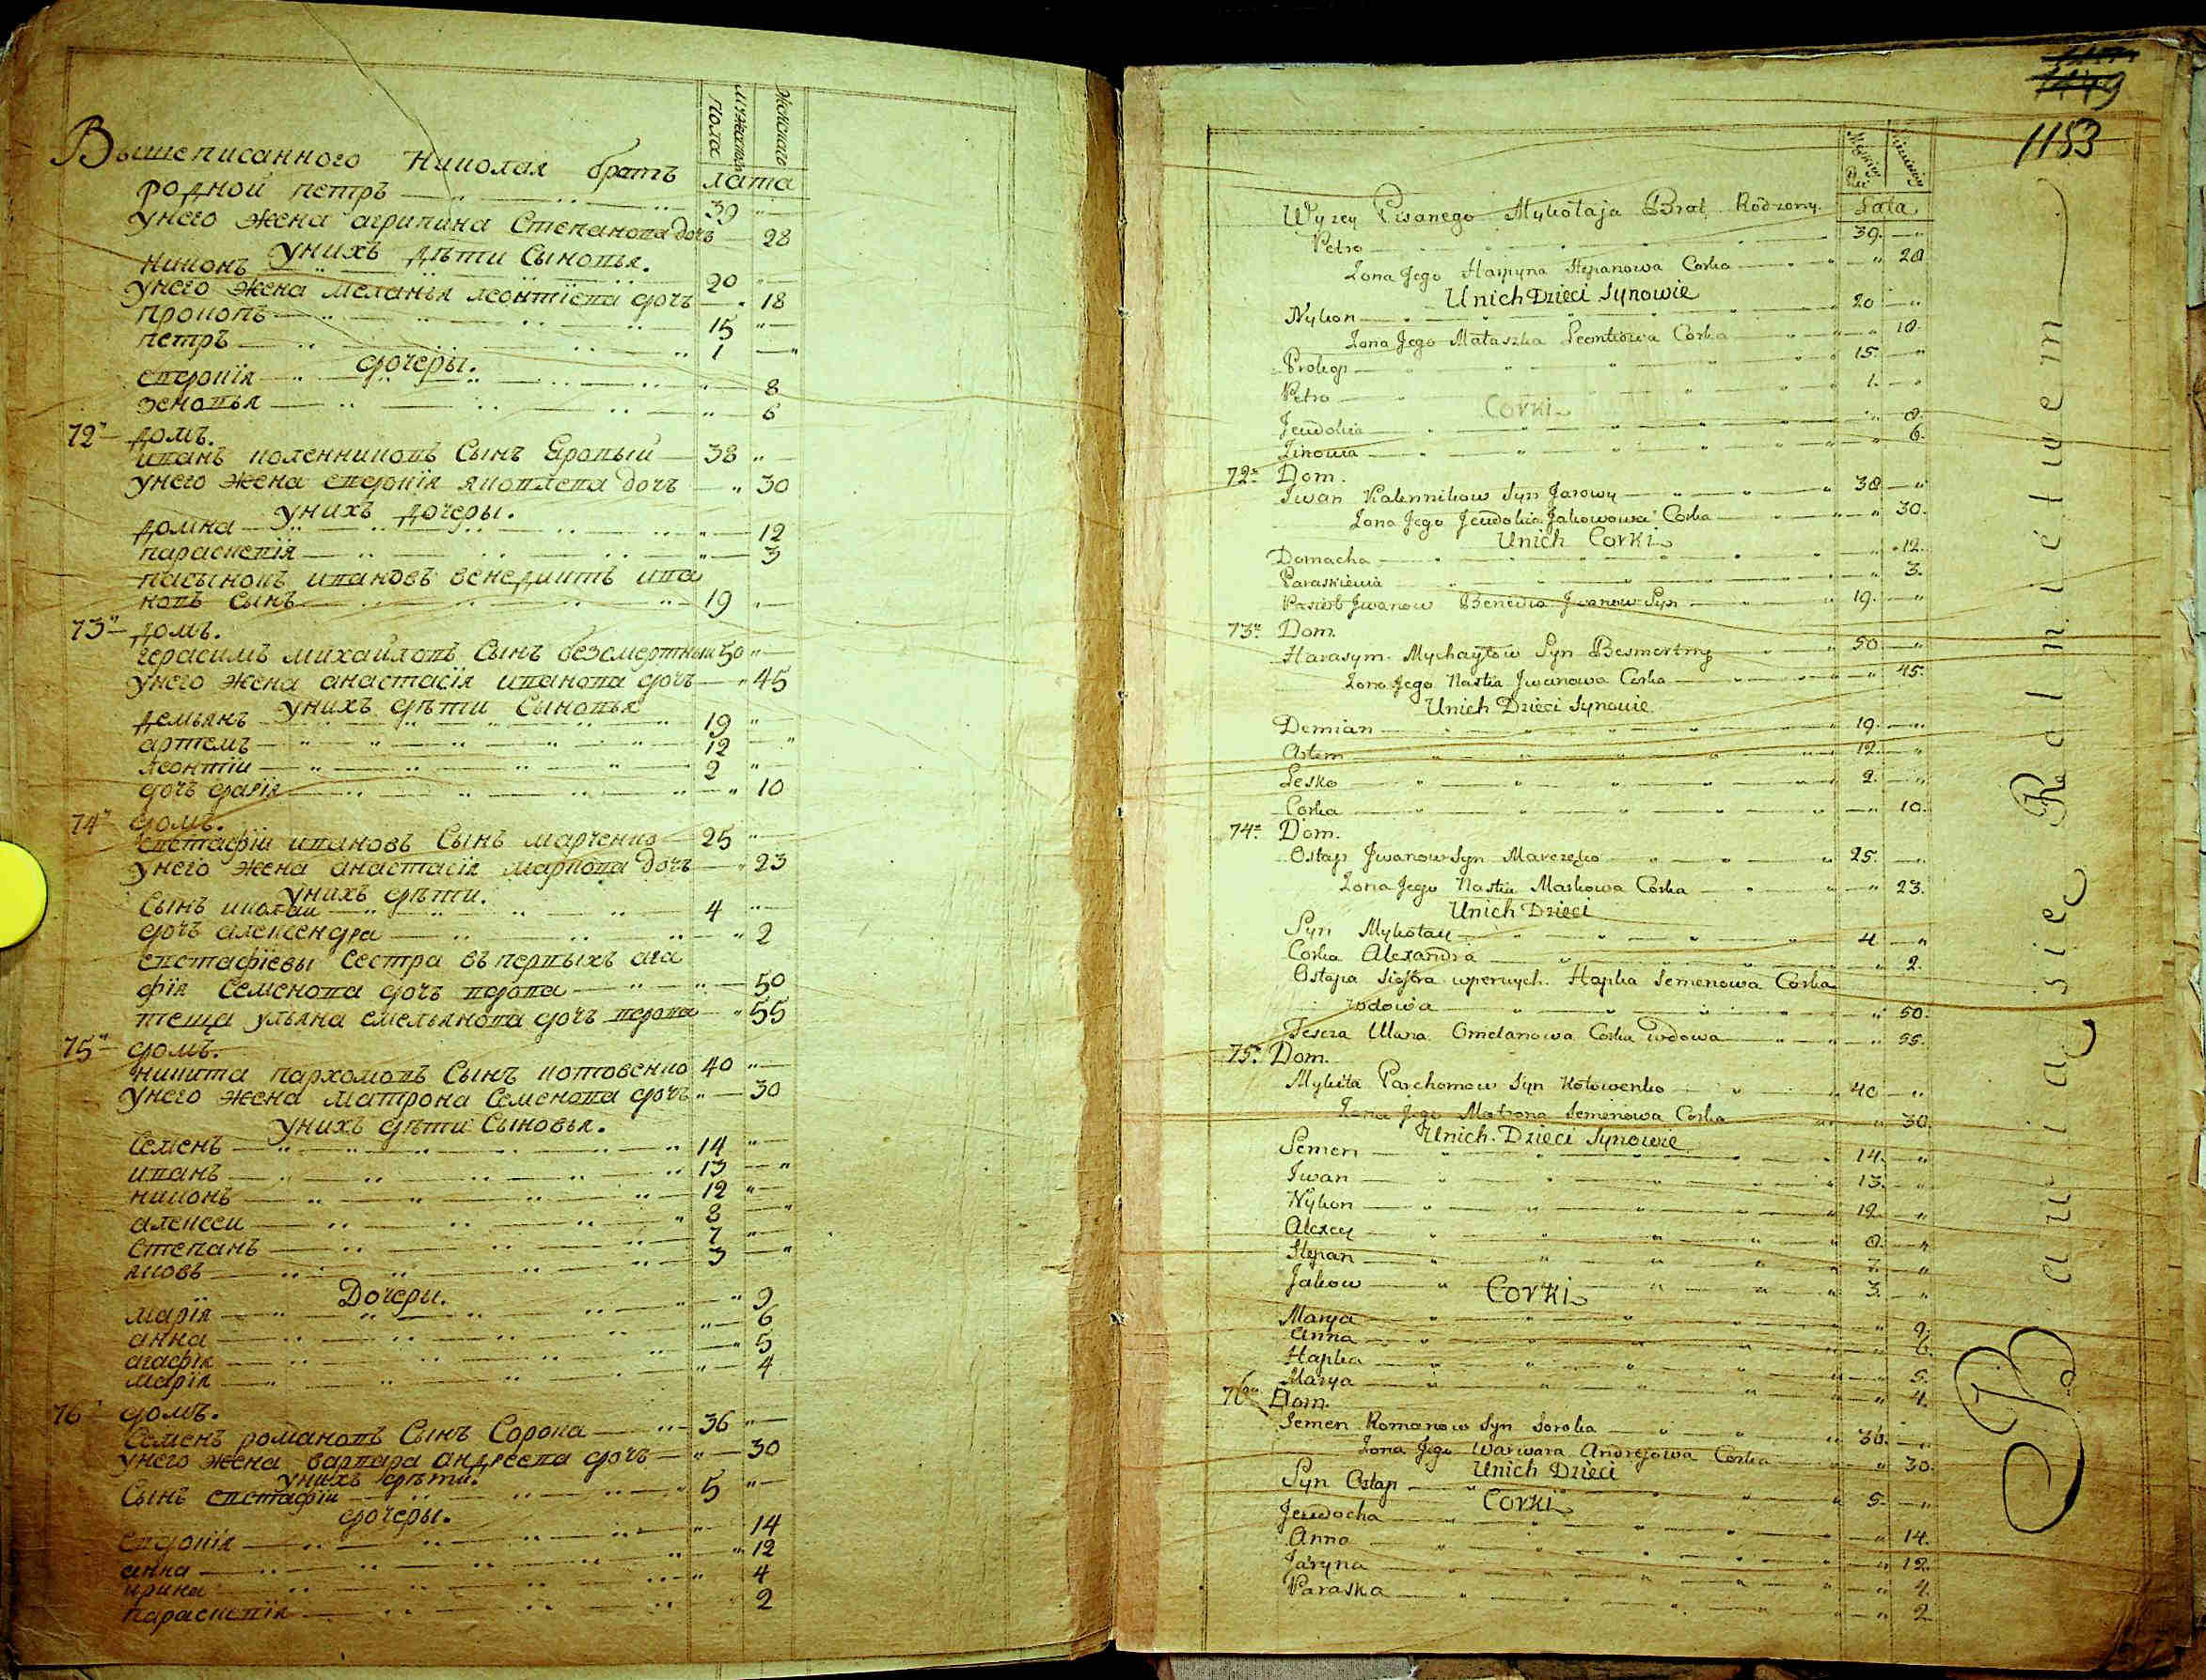 мужеска пола
женскаго
лѣта
Вышеписанного Николая братъ
родной петръ 39
унего жена агрипина Степанова дочь 28
унихъ дѣти Сыновья.
никонъ 20
унего жена меланья леонтіева дочь 18
прокопъ 15
петръ 1
дочеры.
евдокія 8
зеновья 6
72 домъ.
иванъ каленниковъ Сынъ Яровыи 38
унего жена евдокія яковлева дочь 30
унихъ дочеры.
домна 12
параскевія 3
пасынокъ ивановъ венедиктъ ива
новъ Сынъ 19
73 домъ.
герасимъ михаиловъ Сынъ безсмертныи 50
унего жена анастасія иванова дочь 45
унихъ дѣти Сыновья
демьянъ 19
артемъ 12
леонтіи 2
дочь дарія 10
74 домъ.
евстафіи ивановъ Сынъ марченко 25
унего жена анастасія маркова дочь 23
унихъ дѣти.
Сынъ николаи 4
дочь александра 2
евстафіевы Сестра въ первыхъ ага
фія Семенова дочь вдова 50
теща ульяна емельянова дочь вдова 55
75 домъ.
никита пархомовъ Сынъ котовенко 40
унего жена матрона Семенова дочь 30
унихъ дѣти Сыновья.
Семенъ 14
иванъ 13
никонъ 12
алексеи 8
Степанъ 7
яковъ 3
Дочеры.
марія 9
анна 6
агафія 5
марія 4
76 домъ.
Семенъ романовъ Сынъ Сорока 36
унего жена варвара андреева дочь 30
унихъ дѣти.
Сынъ евстафіи 5
дочеры.
евдокія 14
анна 12
ирина 4
параскевія 2
1153
Lata
Wyzey Pisanego Mykołaja Brat Rodzony
Petro 39.
Zona Jego Harpyna Stepanowa Corka 28
Unich Dzieci Synowie
Nykon 20
Zona Jego Małaszka Leontiowa Corka 18.
Prokop 15.
Petro 1.
Corki
Jewdokia 8.
Zinowia 6.
72. Dom.
Jwan Kalennikow Syn Jarowy 38
Zona Jego Jewdokia Jakowowa Corka 30.
Unich Corki
Domacha 12.
Paraskiewia 3.
Pasierb Jwanow Benedio Jwanow Syn 19.
73. Dom.
Harasym Mychayłow Syn Besmertny 50
Zona Jego Nastia Jwanowa Corka 45.
Unich Dzieci Synowie
Demian 19.
Artem 12.
Lesko 2.
Corka 10.
74. Dom.
Ostap Jwanow Syn Marczenko 25.
Zona Jego Nastia Markowa Corka 23.
Unich Dzieci
Syn Mykołay 4
Corka Alexandra 2.
Ostapa Siostra wperwych Hapka Semenowa Corka
wdowa 50.
Tescza Ulana Omelanowa Corka wdowa 55.
75. Dom.
Mykita Parchomow Syn Kotowenko 40
Zona Jego Matrona Semenowa Corka 30.
Unich Dzieci Synowie
Semen 14.
Jwan 13.
Nykon 12.
Alexey 8.
Stepan 7.
Jakow 3.
Corki
Marya 9.
Anna 6.
Hapka 5.
Marya 4.
76. Dom.
Semen Romanow Syn Soroka 36.
Zona Jego Warwara Andrejowa Corka 30.
Unich Dzieci
Syn Ostap 5.
Corki
Jewdocha 14.
Anna 12.
Jaryna 4.
Paraska 2